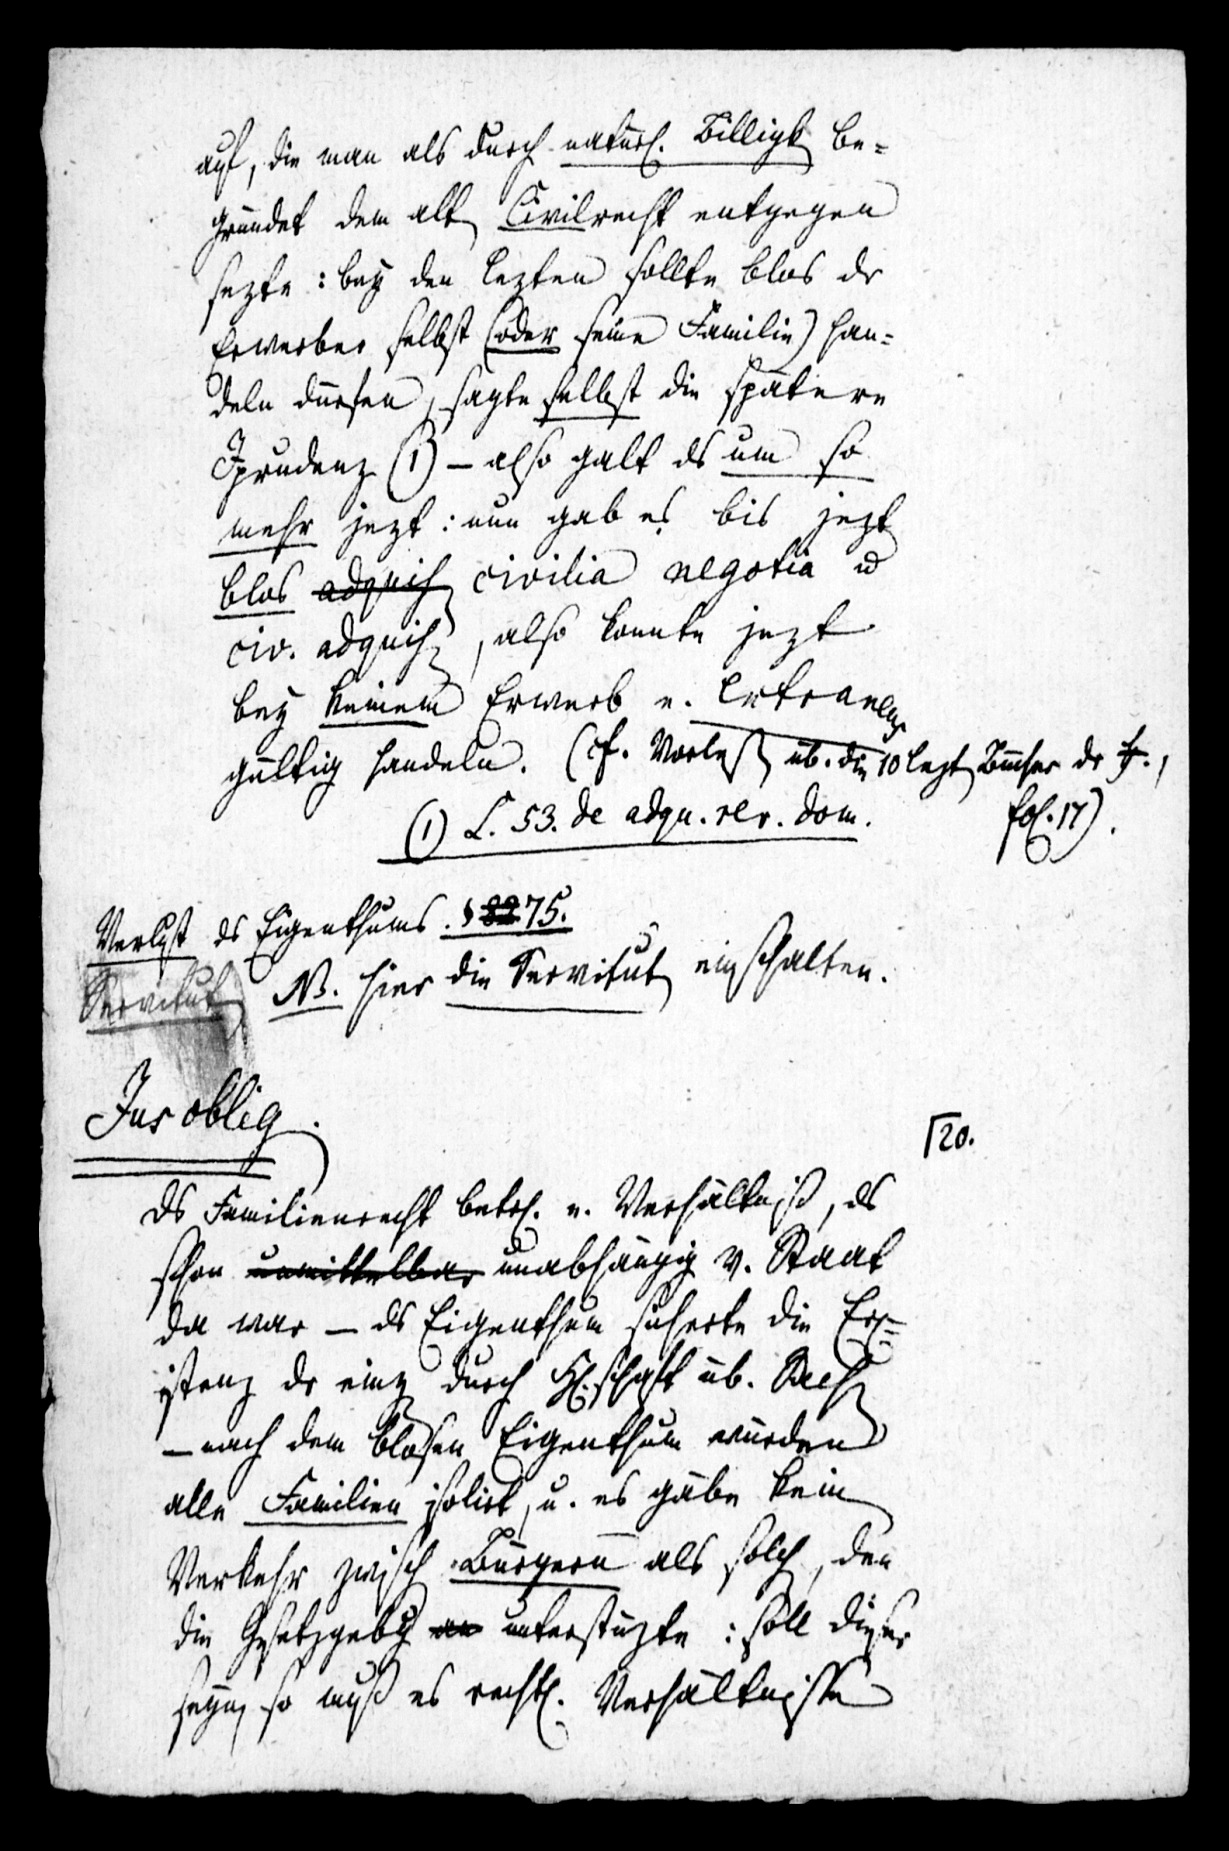 auf, die man als durch natürl. Billigk. be-
gründet dem alt. Civilrecht entgegen
sezte: bey den lezten sollte blos dr
Erwerber selbst (oder seine Familie) han-
deln dürfen, sagte selbst die spätere
Jprudenz (1) – also galt ds um so
mehr jezt: nun gab es bis jezt
blos adquis. civilia negotia u
civ. adquis., also konnte jezt
bey keinem Erwerb e. extraneus
gültig handeln. (cf. Vorles. üb. die 10 lezt. Bücher dr ff.,
fol. 17).
(1) L. 53. de adqu. rer. dom.
Verlust ds Eigenthums. § 82 75.
Servitut. NB. hier die Servitut. einschalten.
Jus oblig.
20.
Ds Familienrecht betrf. e. Verhältniß, ds
schon unmittelbar unabhängig v. Staat
da war – ds Eigenthum sicherte die Exi-
stenz dr einz. durch Hschaft üb. Sach.
– nach dem blosen Eigenthum würden
alle Familien isolirt, u. es gäbe kein
Verkehr zwisch. Bürgern als solch., den
die Gesetzgebg an unterstüzte: soll dieser
seyn, so muß es rechtl. Verhältnisse